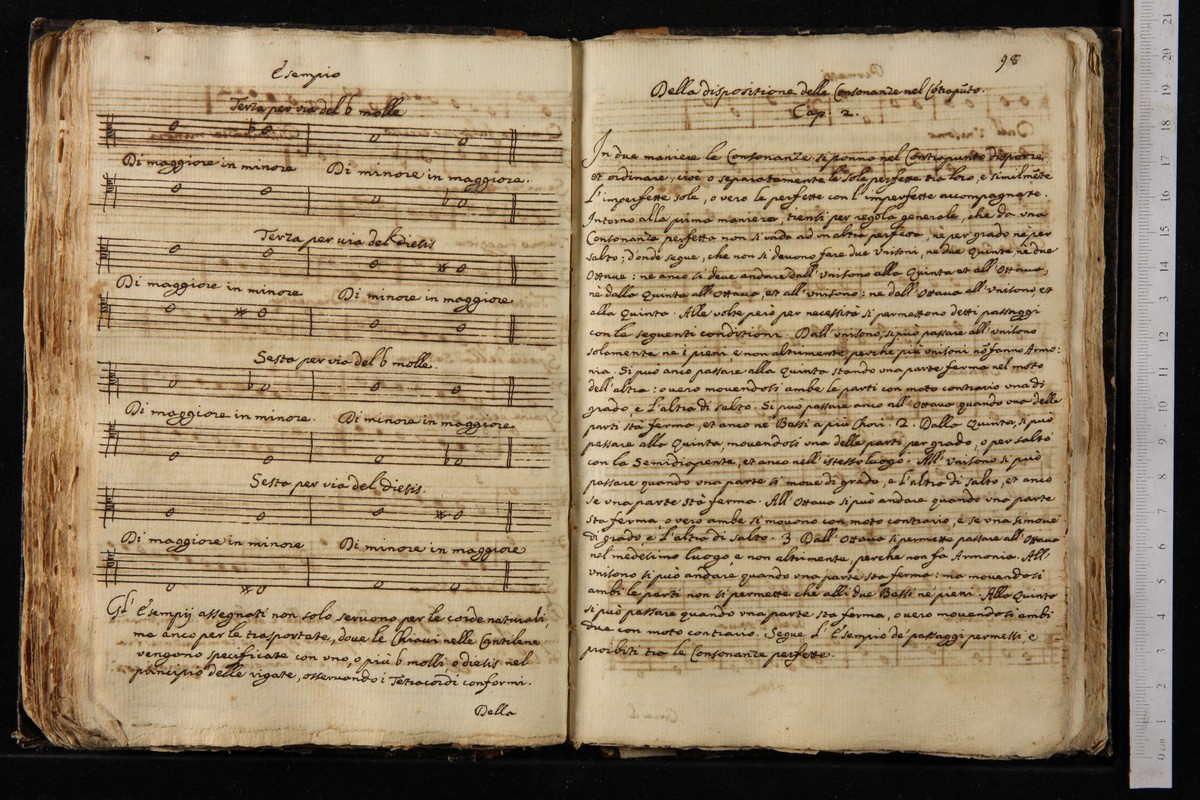 Esempio
Terza per via del b molle
Di maggiore in minore Di minore in maggiore.
Terza per via del diesis
Di maggiore in minore Di minore in maggiore
Sesta per via del b molle
Di maggiore in minore. Di minore in maggiore
Sesta per via del diesis.
Di maggiore in minore Di minore in maggiore
Gl' Esempij assegnati non solo seruono per le corde naturali,
ma anco per le trasportate, doue le Chiaui nelle Cantilene
vengono specificate con uno, o più b molli o diesis nel
principio delle rigate, osseruando i Tetracordi conformi.
Della
98
Della dispositione delle Consonanze nel Cōtrapūto.
Cap. 2.
In due maniere le Consonanze si ponno nel Contrapunto disporre
et ordinare, cioè o separatamente le sole perfette tra loro, e similmēte
l'imperfette sole, o vero le perfette con l'imperfette accompagnate.
Intorno alla prima maniera, tienti per regola generale, che da vna
Consonanza perfetta non si vada ad vn altra perfetta, nè per grado nè per
salto; donde segue, che non si deuono fare due Vnisoni, ne due Quinte, nè due
Ottaue: ne anco si deue andare dall'Vnisono alla Quinta et all'Ottaua,
nè dalla Quinta all'Ottaua, et all'Vnisono: ne dall'Ottaua all'Vnisono, et
alla Quinta. Alle volte però per necessità si permettono detti passaggi
con le seguenti conditioni. Dall'Vnisono, si può passare all'Vnisono
solamente ne i pieni e non altrimente, perche più vnisoni nō fanno Armo:
nia. Si può anco passare alla Quinta stando vna parte ferma nel moto
dell'altra: ouero mouendosi ambe le parti con moto contrario vna di
grado, e l'altra di salto. Si può passare anco all'Ottaua quando vna delle
parti stà ferma, et anco ne Bassi a più Chori. 2. Dalla Quinta, si può
passare alla Quinta, mouendosi vna delle parti per grado, o per salto
con la Semidiapente, et anco nell'istesso luogo. All'Vnisono si può
passare quando vna parte si moue di grado, e l'altra di salto, et anco
se vna parte stà ferma. All'Ottaua si può andare quando vna parte
sta ferma o vero ambe si mouono con moto contrario, e se vna si moue
di grado, e l'altra di salto. 3 Dall'Ottaua si permette passare all'Ottaua
nel medesimo luogo, e non altrimenti, perche non fa Armonia. All'
Vnisono si può andare quando vna parte sta ferma: ma mouendosi
ambi le parti non si permette che alli due Bassi ne pieni. Alla Quinta
si può passare quando vna parte sta ferma, o uero mouendosi ambi
due con moto contrario. Segue l'Esempio de' passaggi permessi e
proibiti tra le Consonanze perfette.